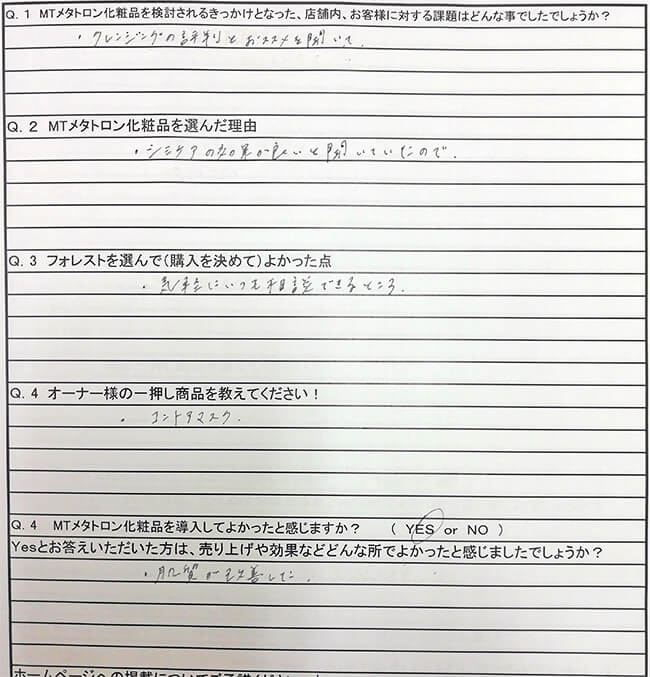 Q. 1 MTメタトロン化粧品を検討されるきっかけとなった、店舗内、お客様に対する課題はどんな事でしたでしょうか？
・クレンジングの評判とおススメを聞いて.
Q. 2 MTメタトロン化粧品を選んだ理由
・シミケアの効果が良いと聞いていたので.
Q. 3 フォレストを選んで（購入を決めて）よかった点
・気軽にいつも相談できるところ.
Q. 4 オーナー様の一押し商品を教えてください！
・コントアマスク.
Q. 4 MTメタトロン化粧品を導入してよかったと感じますか？ （ YES or NO ）
Yesとお答えいただいた方は、売り上げや効果などどんな所でよかったと感じましたでしょうか？
・肌質が改善した.
ホームページへの掲載について